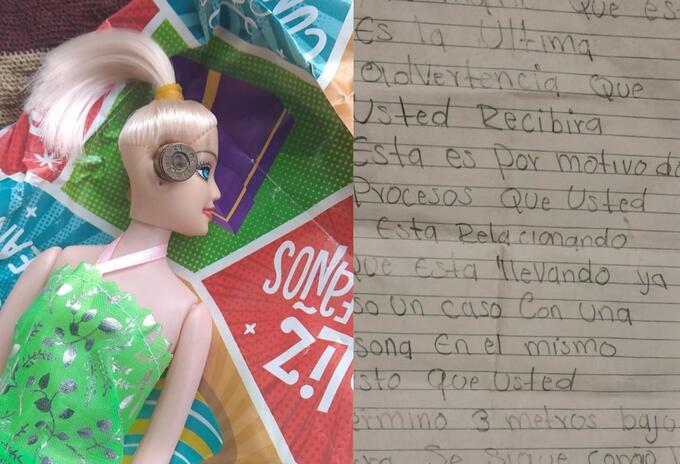 eaños
liz
que es
Es la Ultima
advertencia que
Usted Recibira
Esta es por motivo de
Procesos que Usted
Esta Relacionando
que esta llevando ya
so un caso Con una
sona En el mismo
sto que Usted
ermino 3 metros bajo
Se Sigue